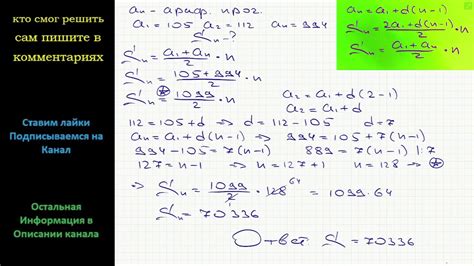 кто смог решить
сам пишите в
комментариях
Ставим лайки
Подписываемся на
Канал
Остальная
Информация в
Описании канала
aₙ - ариф. прог.
a₁ = 105 a₂ = 112 aₙ = 994
Sₙ - ?
Sₙ = (a₁ + aₙ)/2 · n
Sₙ = (105 + 994)/2 · n
* Sₙ = 1099/2 · n
a₂ = a₁ + d(2-1)
a₂ = a₁ + d
112 = 105 + d => d = 112 - 105 d = 7
aₙ = a₁ + d(n-1) => 994 = 105 + 7(n-1)
994 - 105 = 7(n-1) 889 = 7(n-1) |:7
127 = n-1 => n = 127 + 1 n = 128 -> *
=> Sₙ = 1099/2 · 128 64 = 1099 · 64
Sₙ = 70336
Ответ S = 70336
aₙ = a₁ + d(n-1)
Sₙ = (2a₁ + d(n-1))/2 · n
Sₙ = (a₁ + aₙ)/2 · n